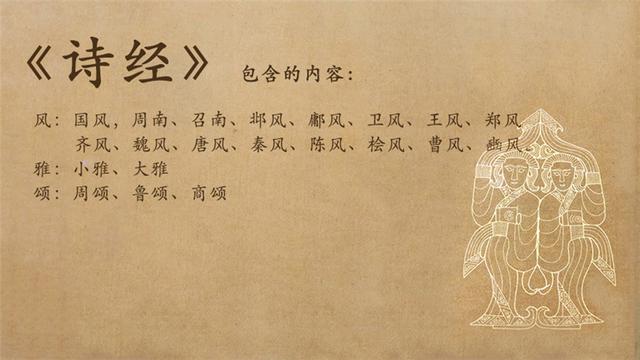 《诗经》 包含的内容：
风：国风，周南、召南、邶风、鄘风、卫风、王风、郑风、
齐风、魏风、唐风、秦风、陈风、桧风、曹风、豳风。
雅：小雅、大雅
颂：周颂、鲁颂、商颂